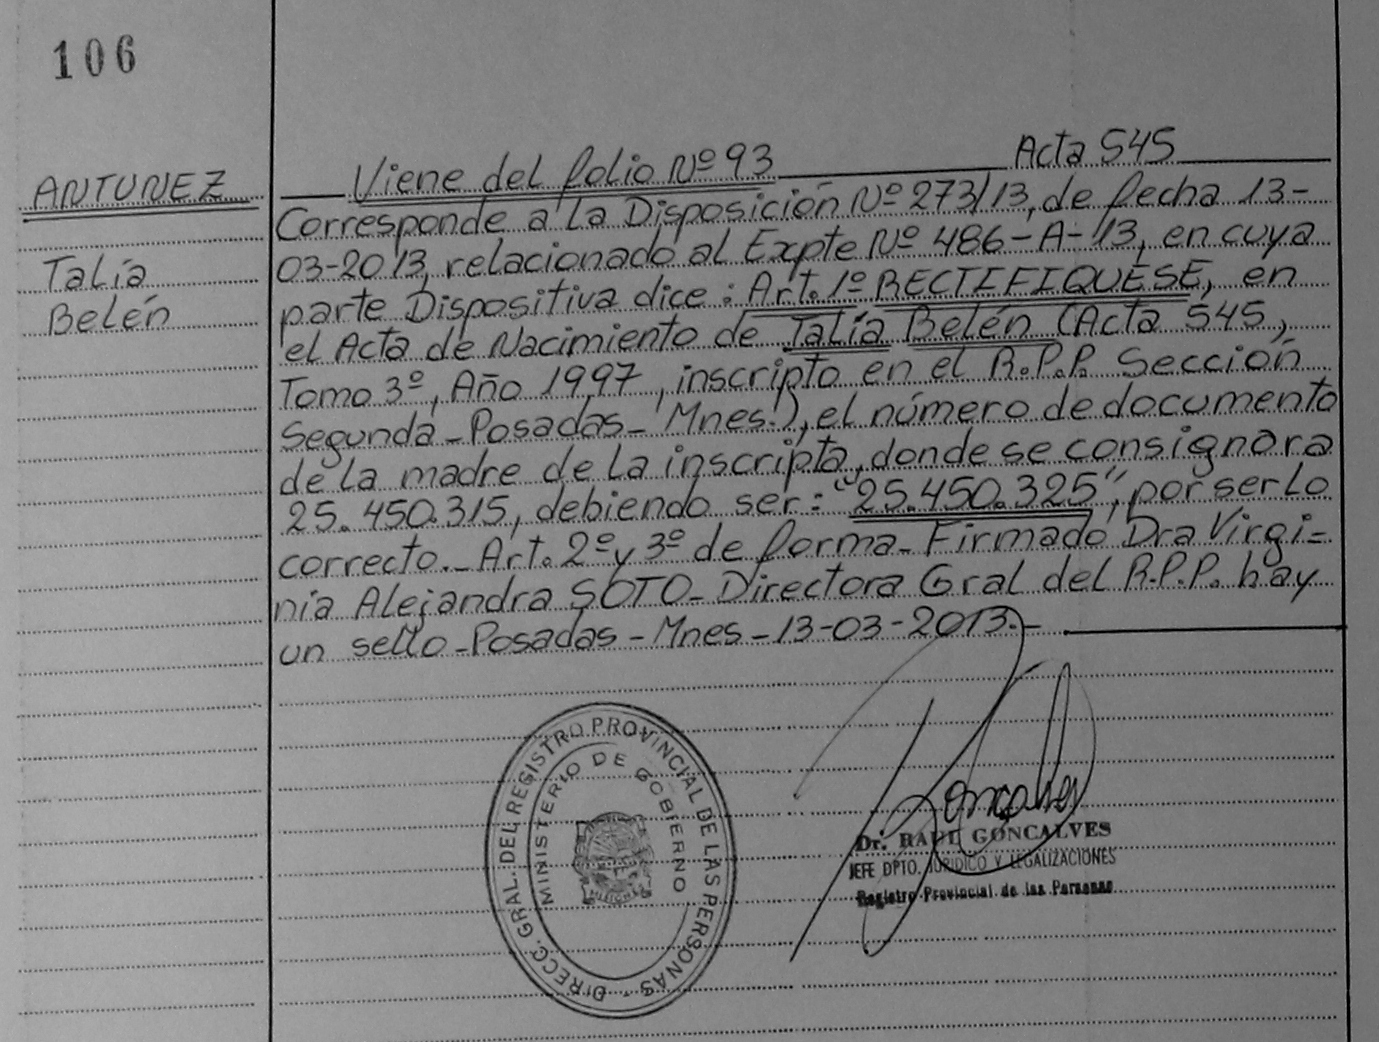 106
ANTUNEZ
Talía
Belén
Viene del folio Nº 93 Acta 545
Corresponde a la Disposición Nº 273/13, de fecha 13-
03-2013, relacionado al Expte Nº 486-A-'13, en cuya
parte Dispositiva dice: Art. 1º RECTIFIQUESE, en
el Acta de Nacimiento de Talía Belén (Acta 545,
Tomo 3º, Año 1997, inscripto en el R.P.P. Sección
Segunda-Posadas-Mnes.), el número de documento
de la madre de la inscripta, donde se consignara
25.450.315, debiendo ser: "25.450.325", por ser lo
correcto.- Art. 2º y 3º de forma- Firmado Dra Virgi=
nia Alejandra SOTO- Directora Gral del R.P.P. hay
un sello-Posadas-Mnes-13-03-2013.-
DIRECC. GRAL. DEL REGISTRO PROVINCIAL DE LAS PERSONAS
MINISTERIO DE GOBIERNO
Goncalves
Dr. RAUL GONCALVES
JEFE DPTO. JURIDICO Y LEGALIZACIONES
Registro Provincial de las Personas